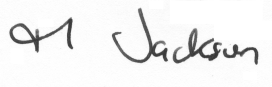 M Jackson